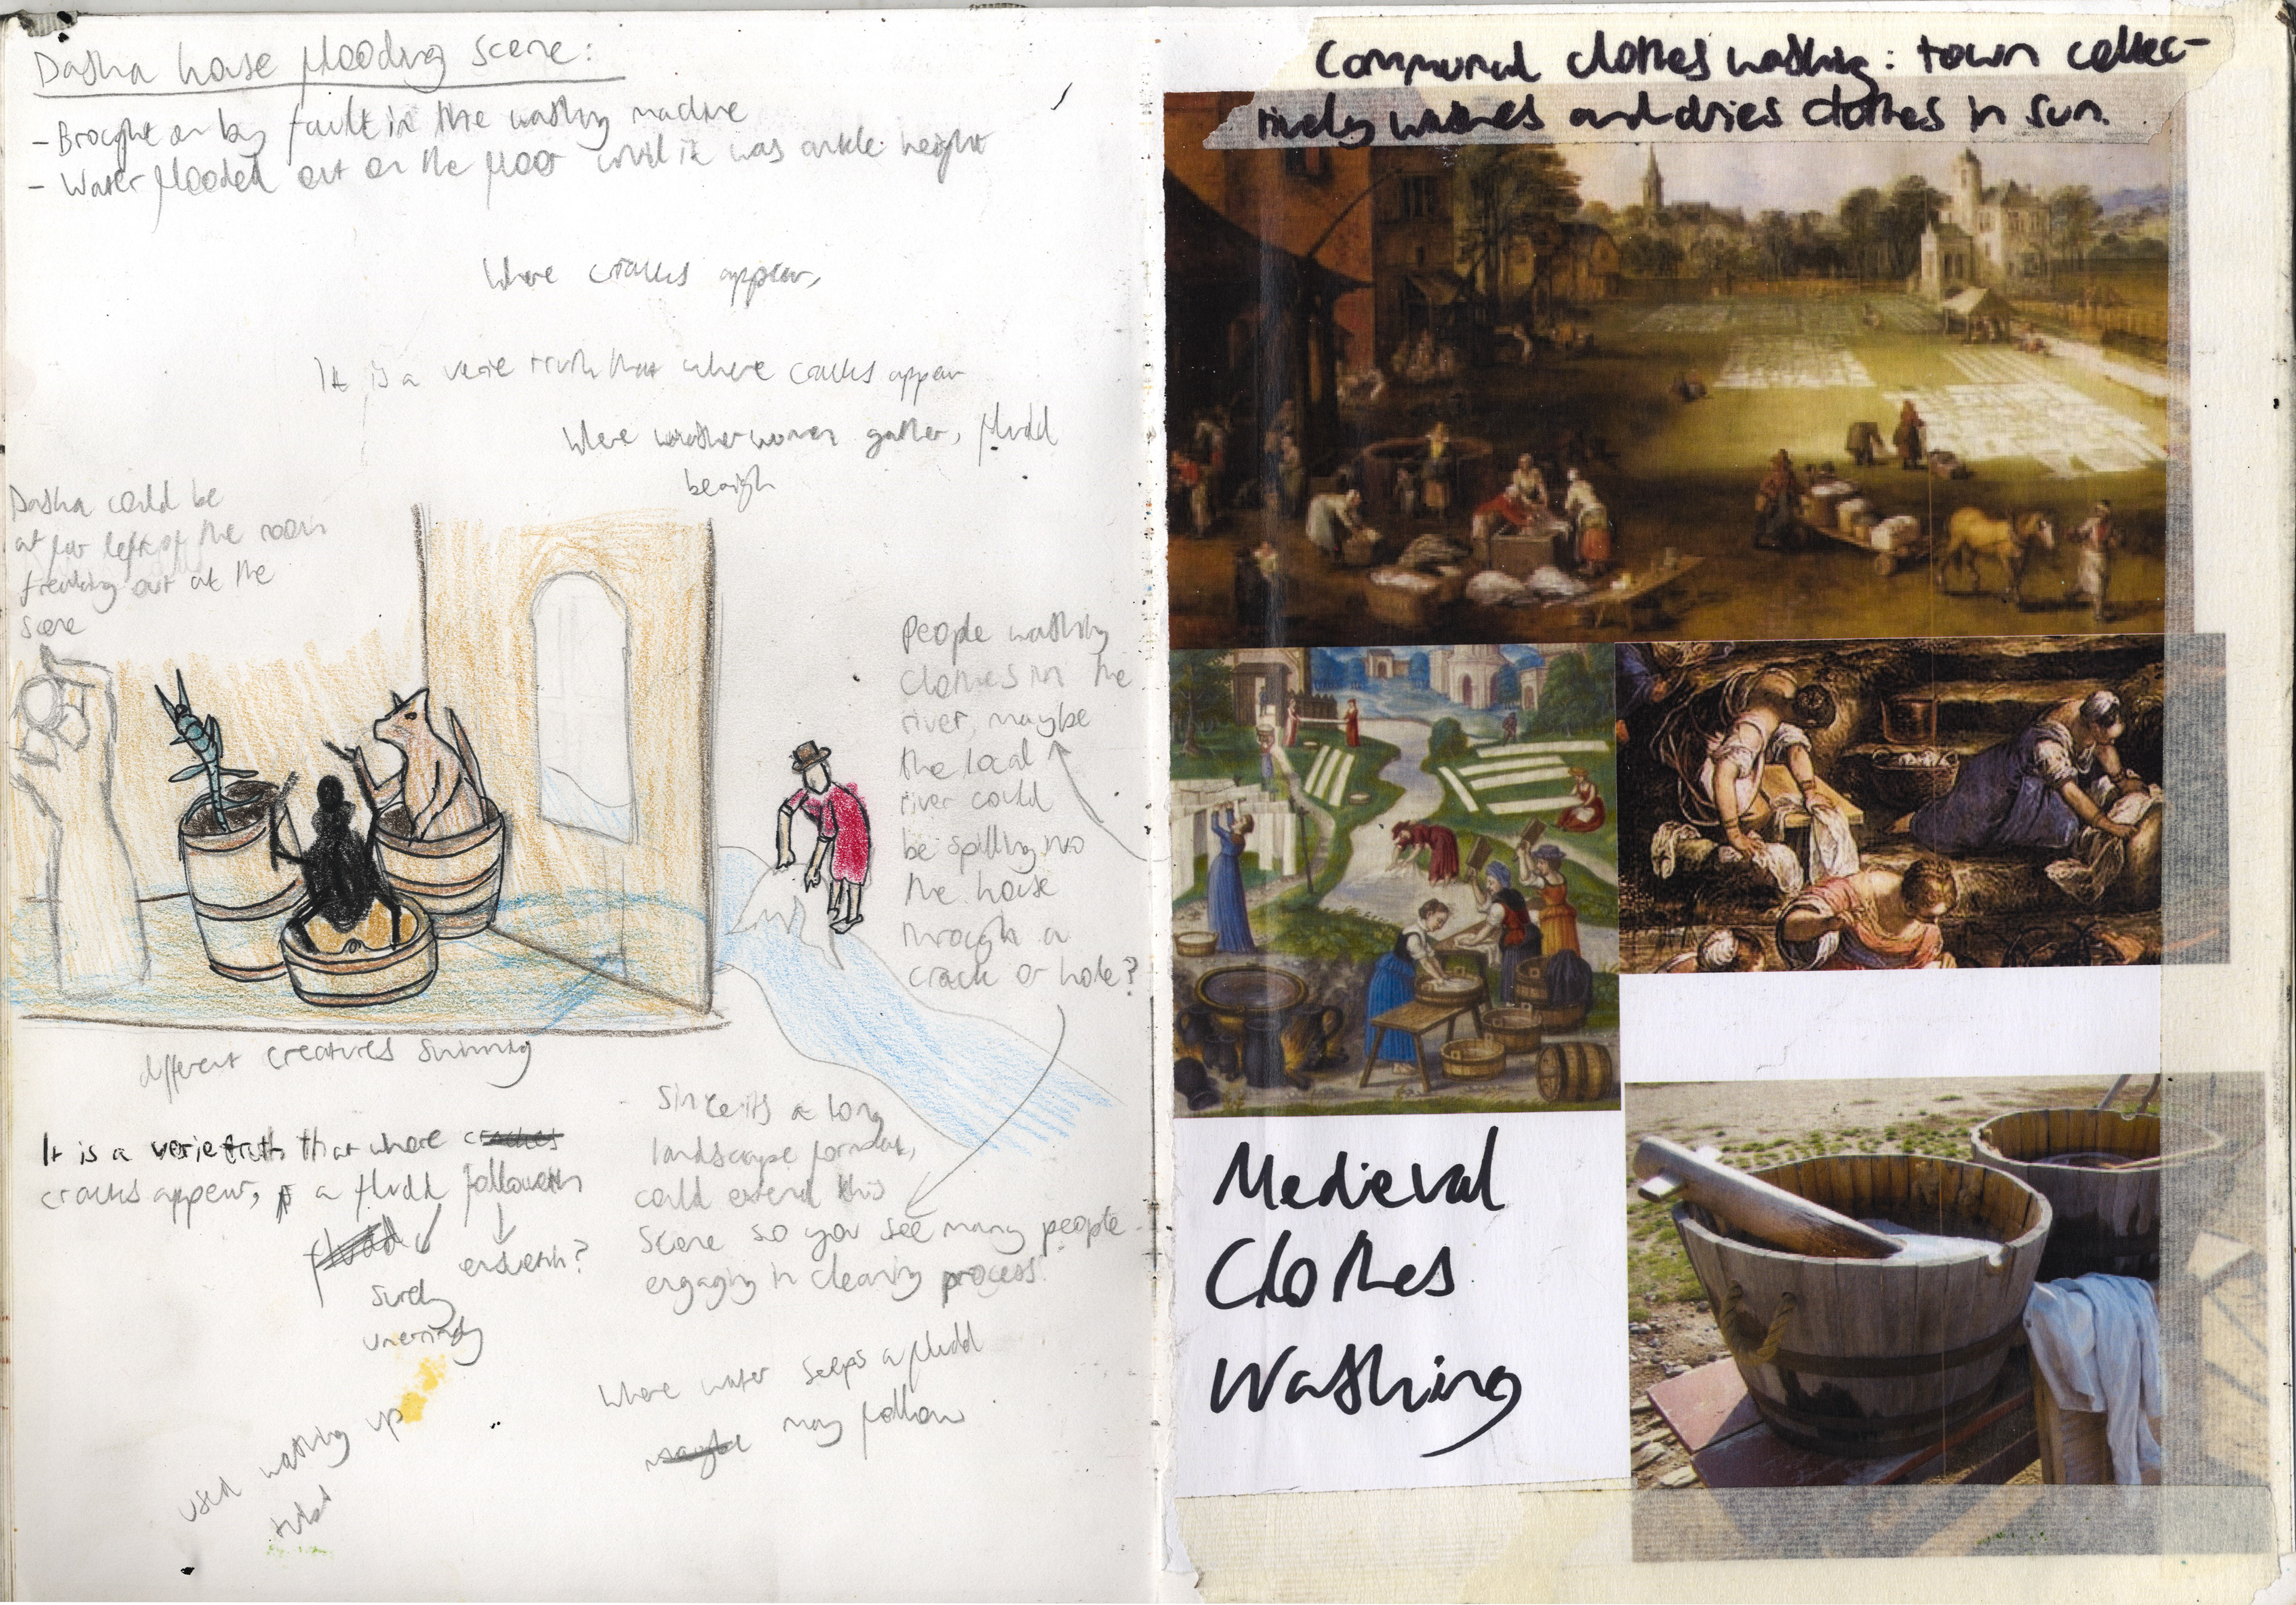 Dasha house flooding scene:
- Brought on by fault in the washing machine
- Water flooded out on the floor until it was ankle height
Where cracks appear,
It is a verie truth that where cracks appear
Where washerwomen gather, fludd
Dasha could be
at far left of the room
freaking out at the
scene
People washing
clothes in the
river, maybe
the local
river could
be spilling into
the house
through a
crack or hole?
different creatures swimming
It is a verie truth that where
cracks appear, a fludd followeth
fludd
surely
ensueth?
unerringly
Since its a long
landscape format,
could extend this
scene so you see many people
engaging in cleaning process
Where water seeps a fludd
maybe may follow
used washing up
Communal clothes washing: town collec-
tively washes and dries clothes in sun.
Medieval
Clothes
Washing